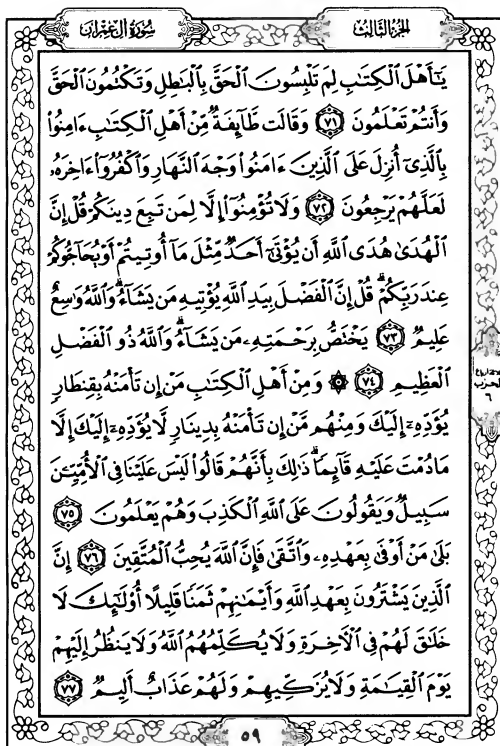 سُورَةُ آلِ عِمْرَان
الجُزْءُ الثَّالِث
يَٰٓأَهْلَ ٱلْكِتَٰبِ لِمَ تَلْبِسُونَ ٱلْحَقَّ بِٱلْبَٰطِلِ وَتَكْتُمُونَ ٱلْحَقَّ
وَأَنتُمْ تَعْلَمُونَ ٧١ وَقَالَت طَّآئِفَةٌ مِّنْ أَهْلِ ٱلْكِتَٰبِ ءَامِنُوا۟
بِٱلَّذِىٓ أُنزِلَ عَلَى ٱلَّذِينَ ءَامَنُوا۟ وَجْهَ ٱلنَّهَارِ وَٱكْفُرُوٓا۟ ءَاخِرَهُۥ
لَعَلَّهُمْ يَرْجِعُونَ ٧٢ وَلَا تُؤْمِنُوٓا۟ إِلَّا لِمَن تَبِعَ دِينَكُمْ قُلْ إِنَّ
ٱلْهُدَىٰ هُدَى ٱللَّهِ أَن يُؤْتَىٰٓ أَحَدٌ مِّثْلَ مَآ أُوتِيتُمْ أَوْ يُحَآجُّوكُمْ
عِندَ رَبِّكُمْ ۗ قُلْ إِنَّ ٱلْفَضْلَ بِيَدِ ٱللَّهِ يُؤْتِيهِ مَن يَشَآءُ ۗ وَٱللَّهُ وَٰسِعٌ
عَلِيمٌ ٧٣ يَخْتَصُّ بِرَحْمَتِهِۦ مَن يَشَآءُ ۗ وَٱللَّهُ ذُو ٱلْفَضْلِ
ٱلْعَظِيمِ ٧٤ ۞ وَمِنْ أَهْلِ ٱلْكِتَٰبِ مَنْ إِن تَأْمَنْهُ بِقِنطَارٍ
يُؤَدِّهِۦٓ إِلَيْكَ وَمِنْهُم مَّنْ إِن تَأْمَنْهُ بِدِينَارٍ لَّا يُؤَدِّهِۦٓ إِلَيْكَ إِلَّا
مَا دُمْتَ عَلَيْهِ قَآئِمًا ۗ ذَٰلِكَ بِأَنَّهُمْ قَالُوا۟ لَيْسَ عَلَيْنَا فِى ٱلْأُمِّيِّۦنَ
سَبِيلٌ وَيَقُولُونَ عَلَى ٱللَّهِ ٱلْكَذِبَ وَهُمْ يَعْلَمُونَ ٧٥
بَلَىٰ مَنْ أَوْفَىٰ بِعَهْدِهِۦ وَٱتَّقَىٰ فَإِنَّ ٱللَّهَ يُحِبُّ ٱلْمُتَّقِينَ ٧٦ إِنَّ
ٱلَّذِينَ يَشْتَرُونَ بِعَهْدِ ٱللَّهِ وَأَيْمَٰنِهِمْ ثَمَنًا قَلِيلًا أُو۟لَٰٓئِكَ لَا
خَلَٰقَ لَهُمْ فِى ٱلْءَاخِرَةِ وَلَا يُكَلِّمُهُمُ ٱللَّهُ وَلَا يَنظُرُ إِلَيْهِمْ
يَوْمَ ٱلْقِيَٰمَةِ وَلَا يُزَكِّيهِمْ وَلَهُمْ عَذَابٌ أَلِيمٌ ٧٧
الحزب
٦
٥٩